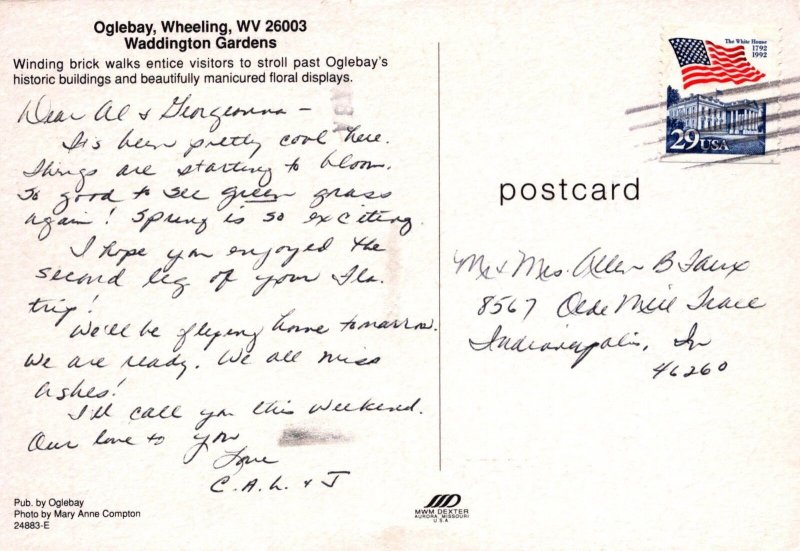 Oglebay, Wheeling, WV 26003
Waddington Gardens
Winding brick walks entice visitors to stroll past Oglebay's
historic buildings and beautifully manicured floral displays.
Dear Al & Georgeanna –
It's been pretty cool here.
Things are starting to bloom.
So good to see green grass
again! Spring is so exciting.
I hope you enjoyed the
second leg of your Fla.
trip!
We'll be flying home tomorrow.
We are ready. We all miss
Ashes!
I'll call you this weekend.
Our love to you
Love
C. A. L. & J
Pub. by Oglebay
Photo by Mary Anne Compton
24883-E
The White House
1792
1992
29 USA
postcard
Mr & Mrs. Allen B Faux
8567 Olde Mill Trace
Indianapolis, In
46260
MWM DEXTER
AURORA, MISSOURI
U.S.A.